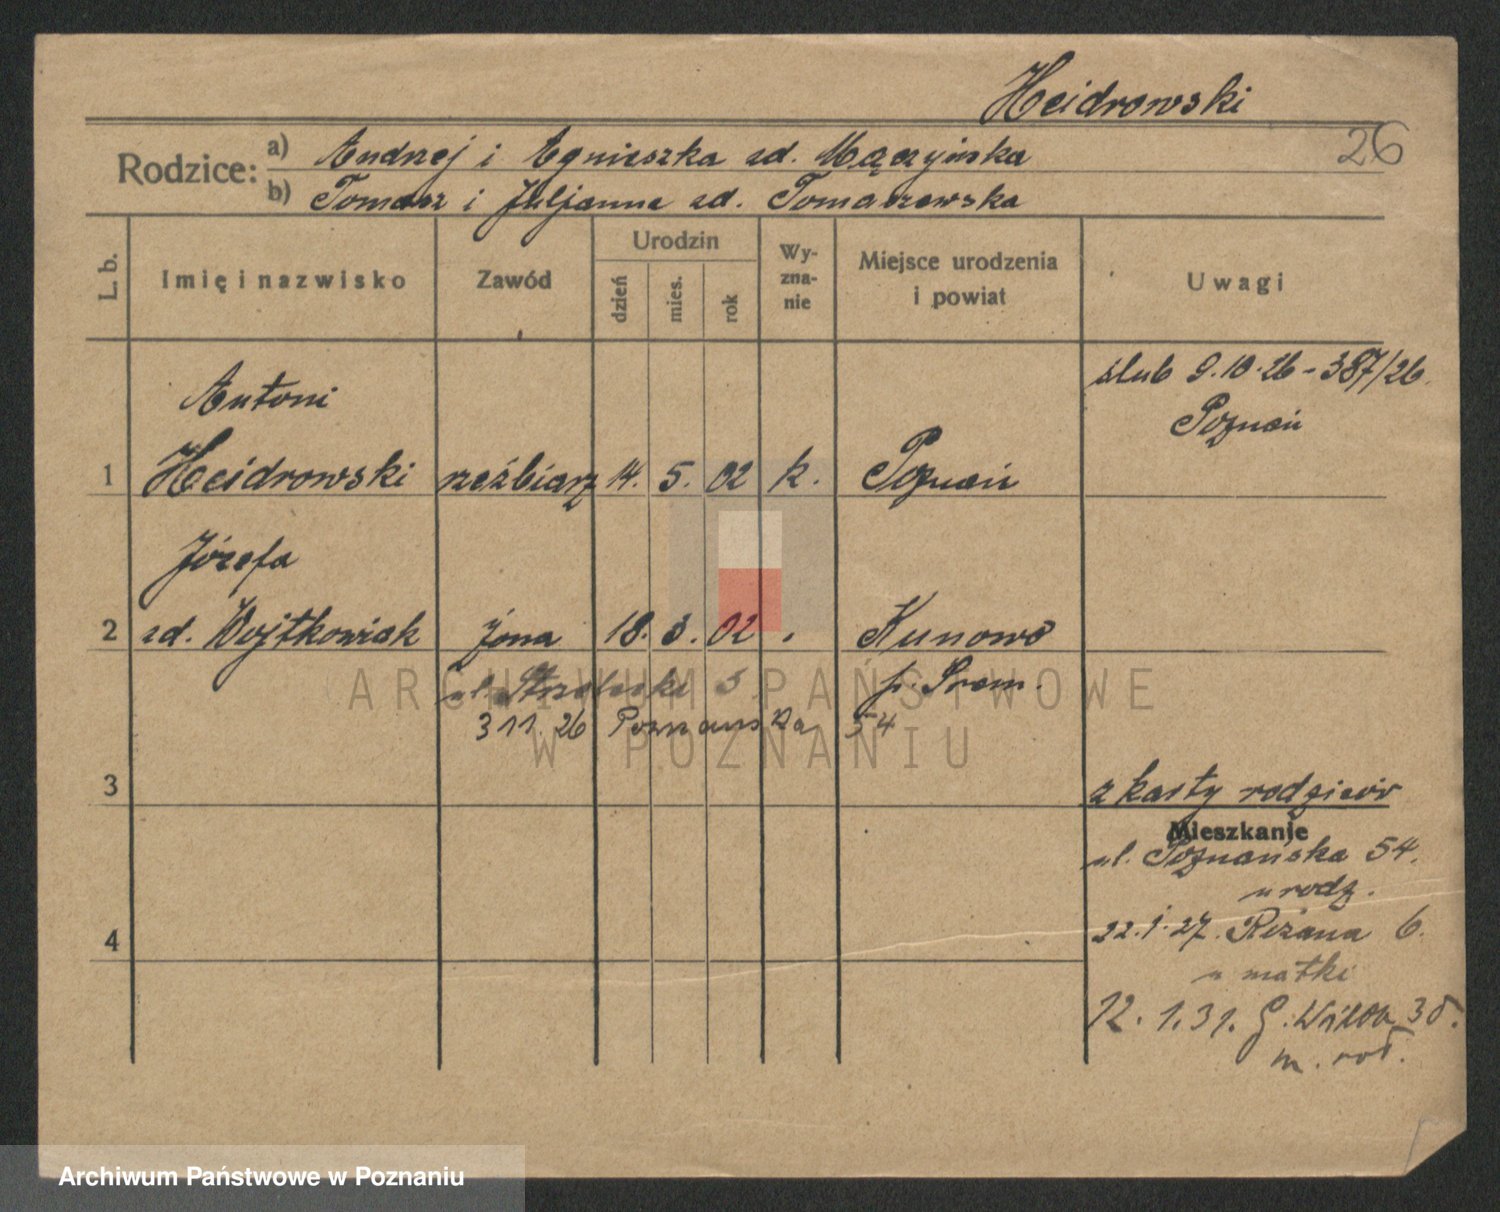 Heidrowski
26
Rodzice:
a) Andrzej i Agnieszka zd. Mączyńska
b) Tomasz i Juljanna zd. Tomaszewska
L. b.
Imię i nazwisko
Zawód
Urodzin
dzień
mies.
rok
Wy-
zna-
nie
Miejsce urodzenia
i powiat
Uwagi
ślub 9.10.26 - 387/26
Poznań
Antoni
1 Heidrowski rzeźbiarz 14. 5. 02 k. Poznań
Józefa
2 zd. Wojtkowiak żona 18. 3. 02 Kunowo
p. Śrem.
ul. Strzelecki 5
3 11. 26 Poznańska 54
3
z karty rodziców
Mieszkanie
ul. Poznańska 54.
u rodz.
4
22.1.27. Różana 6.
u matki
12. 1. 31. G. Wilda 38.
ARCHIWUM PAŃSTWOWE
W POZNANIU
Archiwum Państwowe w Poznaniu